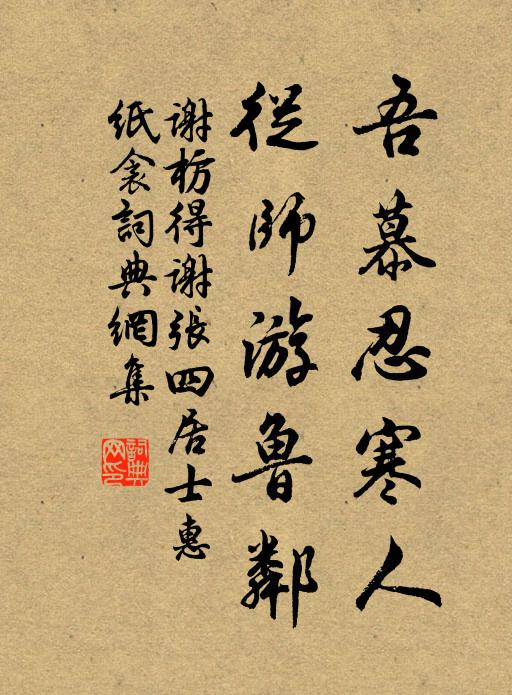 吾慕忍寒人
從師游魯鄰
謝枋得謝張四居士惠
紙衾詞典網集
詞典
网印